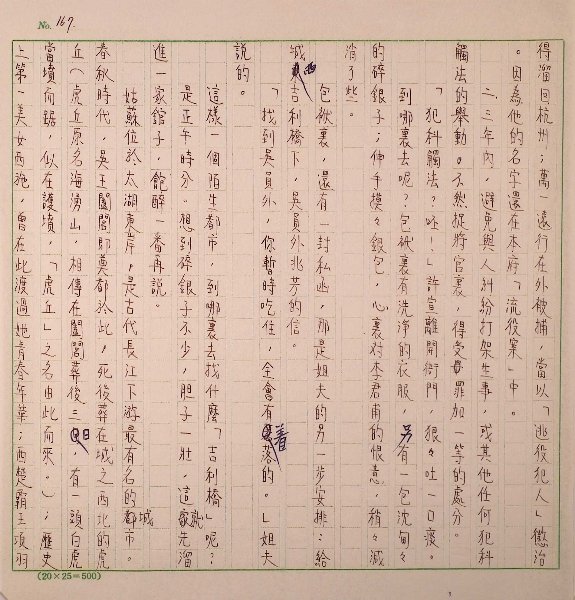 No. 167.
得溜回杭州；萬一遠行在外被捕，當以「逃役犯人」懲治
。因為他的名字還在本府「流役案」中。
二、三年內，避免與人糾紛打架生事，或其他任何犯科
觸法的舉動。不然捉將官裏，得受罪加一等的處分。
「犯科觸法？呸！」許宣離開衙門，狠々吐一口痰。
到哪裏去呢？包袱裏有洗淨的衣服，另有一包沈甸々
的碎銀子；伸手摸々銀包，心裏对李君甫的恨意，稍々減
消了些。
包袱裏，還有一封私函，那是姐夫的另一步安排：給
城西吉利橋下，吳員外兆芳的信。
「找到吳員外，你暫時吃住，全會有着落的。」姐夫
說的。
這樣一個陌生都市，到哪裏去找什麼「吉利橋」呢？
是正午時分。想到碎銀子不少，胆子一壯，這就先溜
進一家館子，飽醉一番再說。
姑蘇位於太湖東岸，是古代長江下游最有名的都城。
春秋時代，吳王闔閭即奠都於此，死後葬在城之西北的虎
丘（虎丘原名海湧山，相傳在闔閭葬後三日，有一頭白虎
當墳而踞，似在護墳，「虎丘」之名由此而來。）；歷史
上第一美女西施，曾在此渡過她青春年華；西楚霸王項羽
(20×25=500)